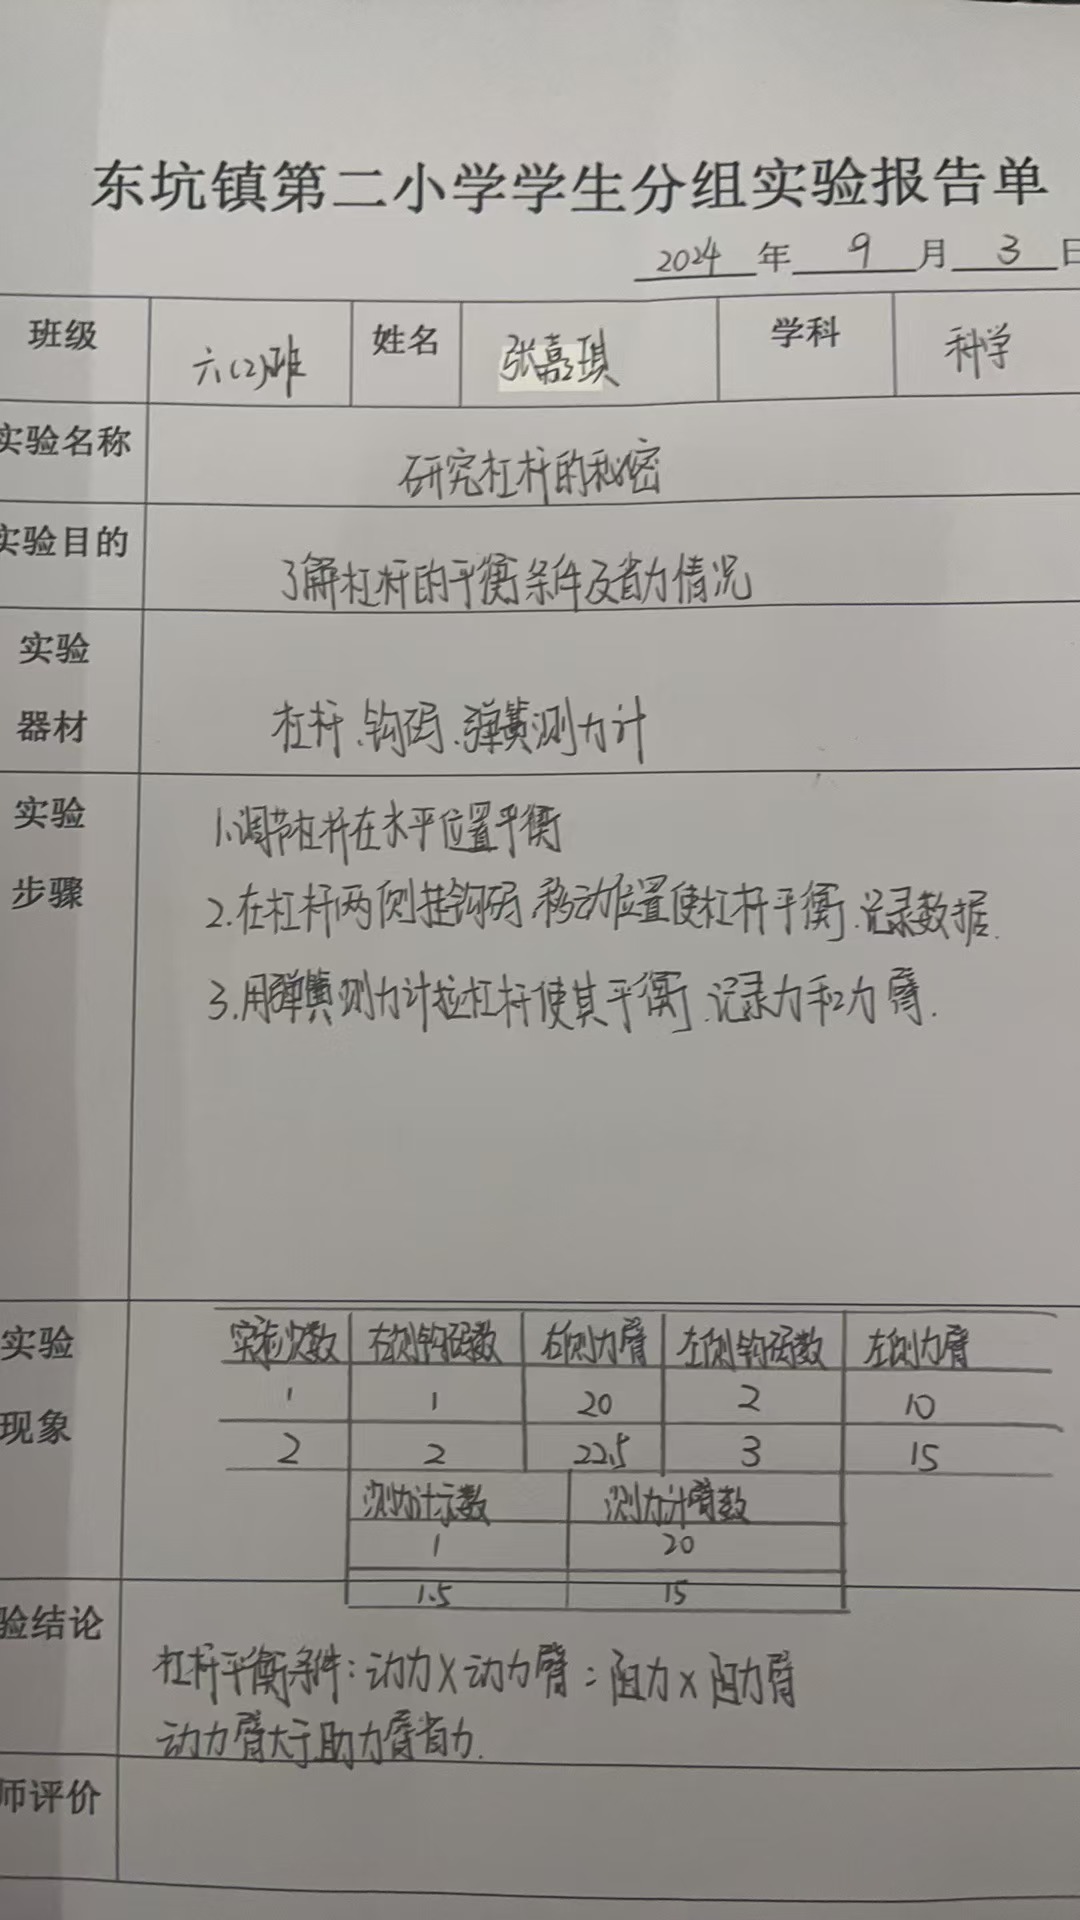 东坑镇第二小学学生分组实验报告单
2024 年 9 月 3 日
班级 六(2)班 姓名 张嘉琪 学科 科学
实验名称 研究杠杆的秘密
实验目的 了解杠杆的平衡条件及省力情况
实验
器材 杠杆、钩码、弹簧测力计
实验 1.调节杠杆在水平位置平衡
步骤 2.在杠杆两侧挂钩码,移动位置使杠杆平衡,记录数据.
3.用弹簧测力计拉杠杆使其平衡,记录力和力臂.
实验 实验次数 右侧钩码数 右侧力臂 左侧钩码数 左侧力臂
1 1 20 2 10
现象
2 2 22.5 3 15
测力计示数 测力计臂数
1 20
1.5 15
验结论
杠杆平衡条件:动力×动力臂=阻力×阻力臂
动力臂大于助力臂省力.
师评价